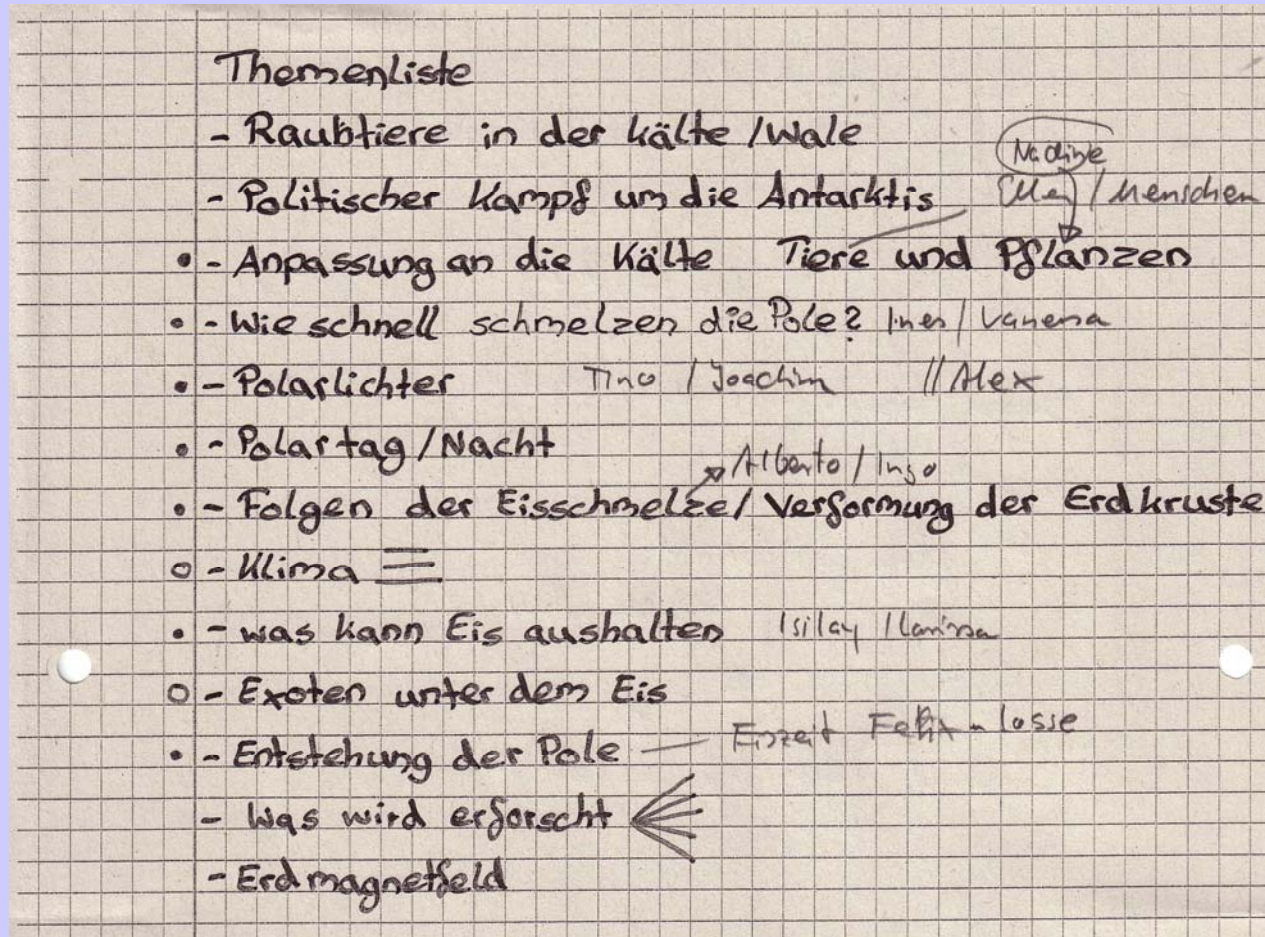 Themenliste
- Raubtiere in der Kälte / Wale
Nadine
- Politischer Kampf um die Antarktis / Menschen
• - Anpassung an die Kälte Tiere und Pflanzen
• - Wie schnell schmelzen die Pole? Ines / Vanessa
• - Polarlichter Tino / Joachim // Alex
• - Polartag / Nacht
Alberto / Ingo
• - Folgen der Eisschmelze / Verformung der Erdkruste
o - Klima
• - was kann Eis aushalten Isilay / Larissa
o - Exoten unter dem Eis
• - Entstehung der Pole — Eiszeit Felix - Losse
- Was wird erforscht
- Erdmagnetfeld